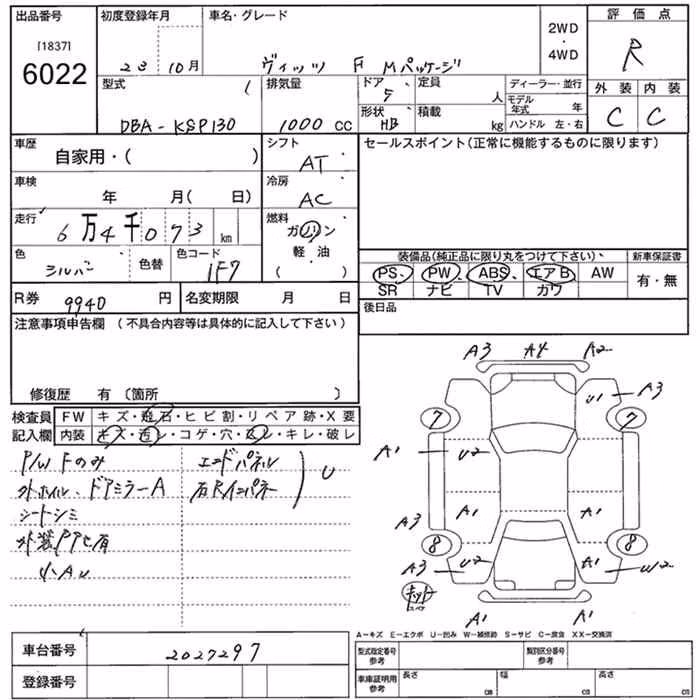 出品番号
[1837]
6022
初度登録年月
23 10月
車名・グレード
ヴィッツ F Mパッケージ
2WD
・
4WD
評価点
R
外装 内装
C C
型式
DBA-KSP130
排気量
1000 cc
ドア
5
形状
HB
定員
人
積載
kg
ディーラー・並行
モデル年式 年
ハンドル 左・右
車歴
自家用・( )
シフト
AT
セールスポイント(正常に機能するものに限ります)
車検
年 月( 日)
冷房
AC
走行
6万4千073 km
燃料
ガソリン
軽・油
( )
色
シルバー
色替
色コード
1F7
装備品(純正品に限り丸をつけて下さい)
新車保証書
PS PW ABS エアB AW
SR ナビ TV カワ
有・無
R券 9940 円
名変期限 月 日
後日品
注意事項申告欄 (不具合内容等は具体的に記入して下さい)
修復歴 有 (箇所 )
検査員
記入欄
FW キズ・飛石・ヒビ割・リペア跡・X要
内装 キズ・汚レ・コゲ・穴・スレ・キレ・破レ
P/W Fのみ
外ホイル、ドアミラーA
シートシミ
外装PP七有
小AU
エンドパネル
右Rインパネ
U
A3 A4 A2
U1 A3
7 7
A1 U2
A1 A1
A3
8 8
A3 U2 A1 W2
キット
A1 A1
A-キズ E-エクボ U-凹み W-補修跡 S-サビ C-腐食 XX-交換済
車台番号
2027297
登録番号
型式指定番号
参考
類別区分番号
参考
車庫証明用
参考
長さ cm
幅 cm
高さ cm